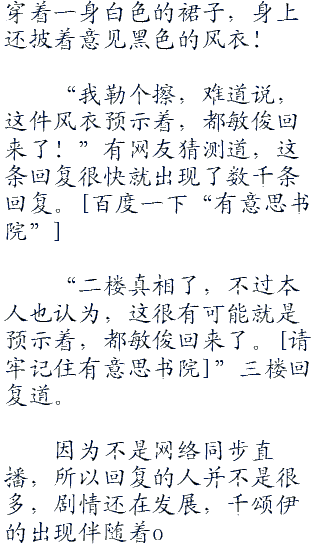 穿着一身白色的裙子，身上
还披着意见黑色的风衣！
“我勒个擦，难道说，
这件风衣预示着，都敏俊回
来了！”有网友猜测道，这
条回复很快就出现了数千条
回复。[百度一下“有意思书
院”]
“二楼真相了，不过本
人也认为，这很有可能就是
预示着，都敏俊回来了。[请
牢记住有意思书院]”三楼回
复道。
因为不是网络同步直
播，所以回复的人并不是很
多，剧情还在发展，千颂伊
的出现伴随着o